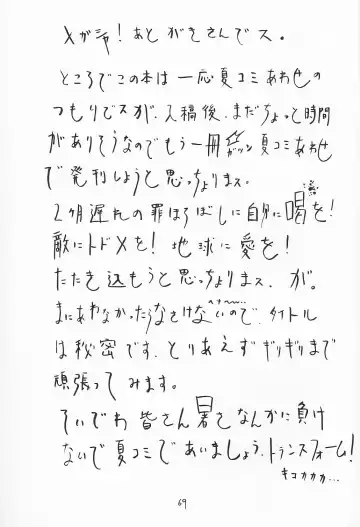 メガシャ!あとがきさんでス。
ところでこの本は一応夏コミあわせの
つもりでスが、入稿後、まだちょっと時間
がありそうなのでもう一冊ガツン夏コミあわせ
で発刊しようと思っちょりまス。
2ヶ月遅れの罪ほろぼしに自分に喝を!
敵にトドメを!地球に愛を!
たたき込もうと思っちょりまス、が。
まにあわなかったらなさけないので、タイトル
は秘密です、とりあえずギリギリまで
頑張ってみます。
そいでわ皆さん暑さなんかに負け
ないで夏コミであいましょう、トランスフォーム!
キコカカカ…
69